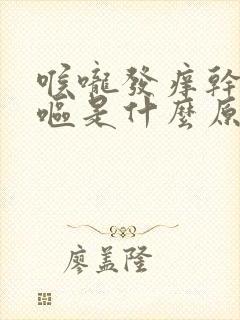 喉嚨發痒幹
嘔是什麼原
廖盖隆